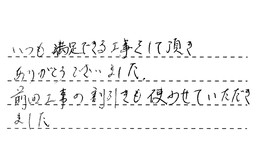 いつも満足できる工事をして頂き
ありがとうございました。
前回工事の割引きも使わせていただき
ました